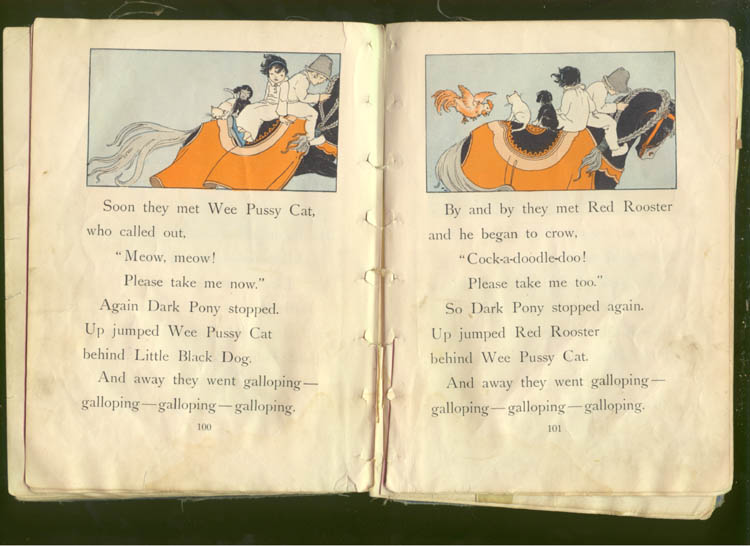 Soon they met Wee Pussy Cat,
who called out,
"Meow, meow!
Please take me now."
Again Dark Pony stopped.
Up jumped Wee Pussy Cat
behind Little Black Dog.
And away they went galloping—
galloping—galloping—galloping.
100
By and by they met Red Rooster
and he began to crow,
"Cock-a-doodle-doo!
Please take me too."
So Dark Pony stopped again.
Up jumped Red Rooster
behind Wee Pussy Cat.
And away they went galloping—
galloping—galloping—galloping.
101